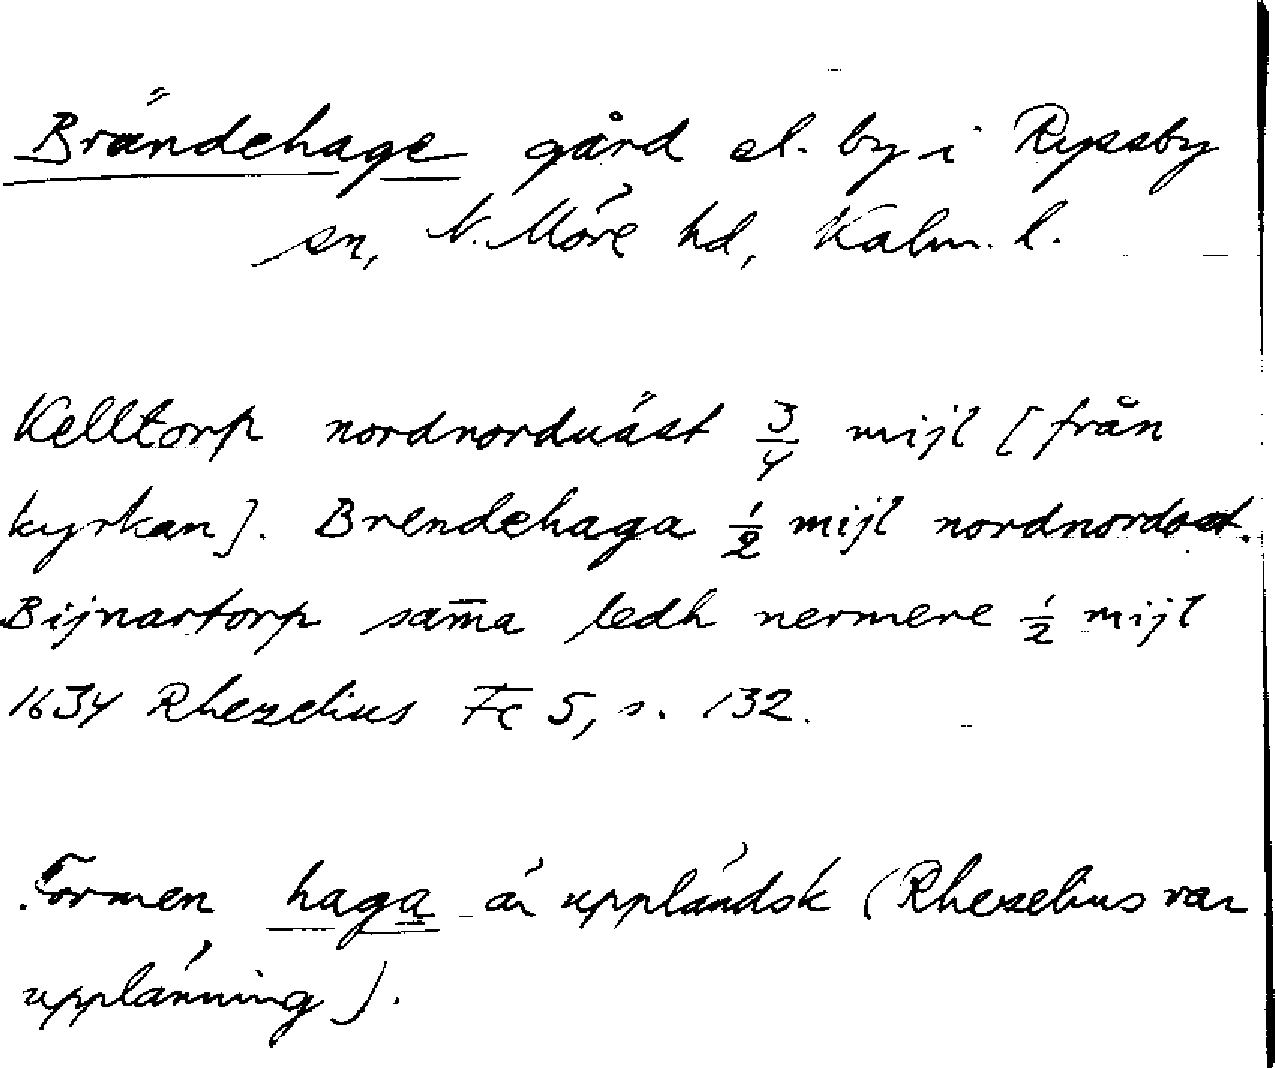 Brändehage gård el. by i Ryssby
sn, N. Möre hd, Kalm. l.
Kelltorp nordnorduäst 3/4 mijl [från
kyrkan]. Brendehaga 1/2 mijl nordnordost.
Bijnartorp sam̄a ledh nermere 1/2 mijl
1634 Rhezelius Fc 5, s. 132.
Formen haga är uppländsk (Rhezelius var
upplänning).